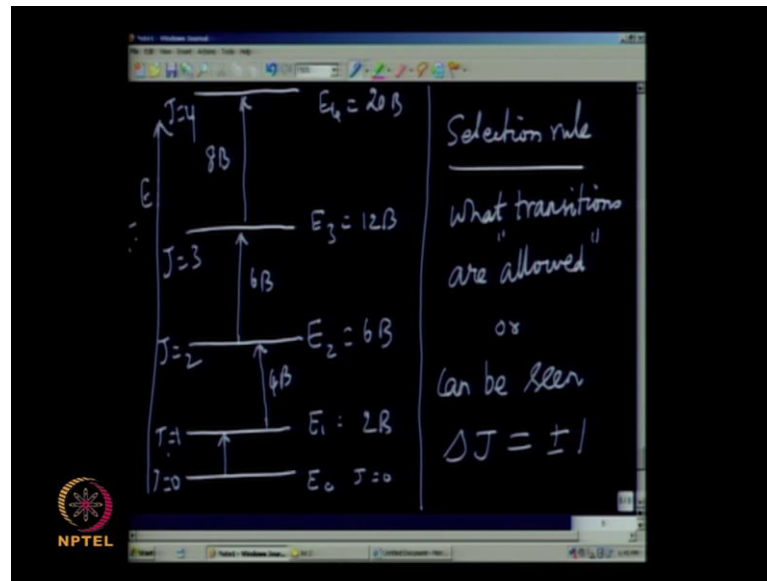 Note1 - Windows Journal
File Edit View Insert Actions Tools Help
J=4
E4 = 20B
8B
E
E3 = 12B
J=3
6B
J=2
E2 = 6B
4B
J=1
E1 = 2B
J=0
E0 J=0
Selection rule
what transitions
are "allowed"
or
Can be seen
ΔJ = ±1
NPTEL
Start
Note1 - Windows Jour...